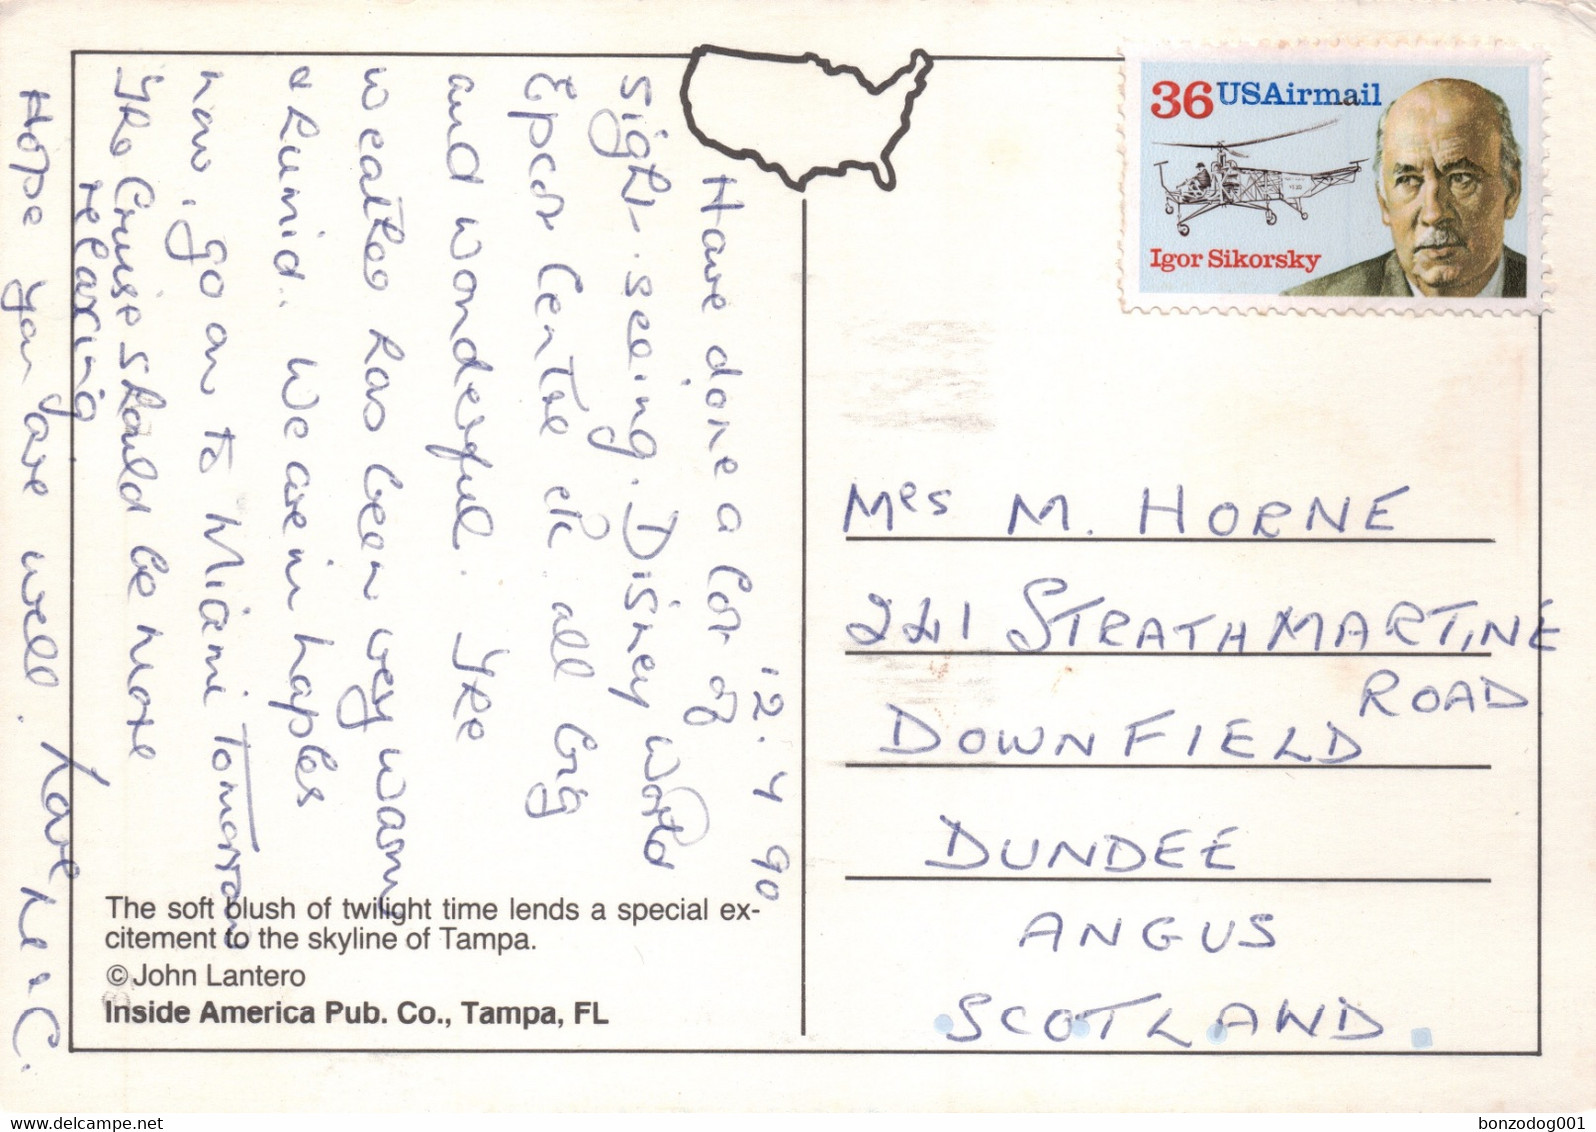 12.4.90
Have done a lot of
sight-seeing. Disney World
Epcot Centre etc. all big
and wonderful. The
weather has been very warm
& humid. We are in Naples
now, go on to Miami Tomorrow
The Cruise should be more
relaxing
Hope you are well. Love
The soft blush of twilight time lends a special ex-
citement to the skyline of Tampa.
© John Lantero
Inside America Pub. Co., Tampa, FL
36 USAirmail
Igor Sikorsky
Mrs M. HORNE
221 STRATHMARTINE
ROAD
DOWNFIELD
DUNDEE
ANGUS
SCOTLAND.
www.delcampe.net
bonzodog001